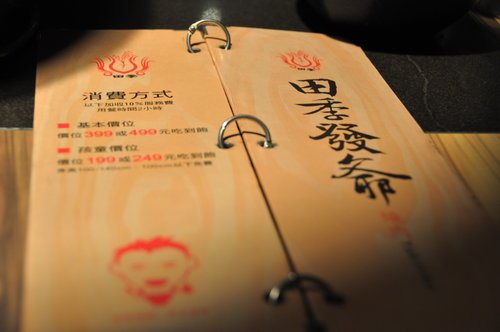 田季
消費方式
以下加收10%服務費
用餐時間2小時
基本價位
價位399或499元吃到飽
孩童價位
價位199或249元吃到飽
身高100-140cm，100cm以下免費
田季
田季發爺
燒肉